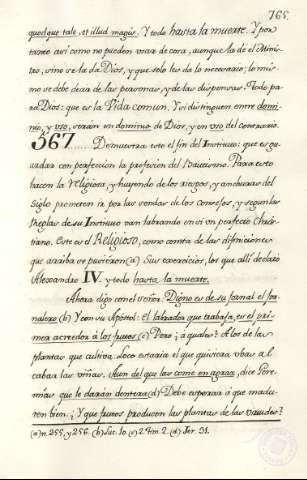 765.
quodque tale, et illud magis. Y todo hasta la muerte. Y por
tanto así como no pueden usar de cosa, aunque la dé el Minis-
tro, sino se la da Dios, y que solo les da lo necesario; lo mis-
mo se debe decir de las personas, y de las dispensas. Todo pa-
ra Dios: que es la Vida comun. Y si distinguen entre domi-
nio, y uso, serán en dominio de Dios, y en uso del contrario.
567. Demuestra este el fin del Instituto: que es gu-
ardar con perfeccion la profesion del Bautismo. Para esto
hacen la Religiosa, y huyendo de los arapos, y anchuras del
Siglo prometen ir por las sendas de los Consejos, y segun las
Reglas de su Instituto van labrando en sí un perfecto Chris-
tiano. Este es el Religioso, como consta de las difiniciones
que arriba se pusieron (a) Sus exercicios, los que allí declaró
Alexandro IV. y todo hasta la muerte.
Ahora digo con el Señor: Digno es de su jornal el jor-
nalero (b) Y con su Apóstol: El labrador que trabaja, es el pri-
mer acredor á los frutos (c) Pero ¿á quales? A los de las
plantas que cultiva. Loco estaria el que quisiera ubas al
cabar las viñas. Aun del que las come en agraz, dice Jere-
mías que le darán dentera (d) Debe esperar á que madu-
ren bien. ¿Y que frutos producen las plantas de las vaudes?
(a) n. 255, y 256. (b) Luc. 10. (c) 2. Tim. 2. (d) Jer. 31.